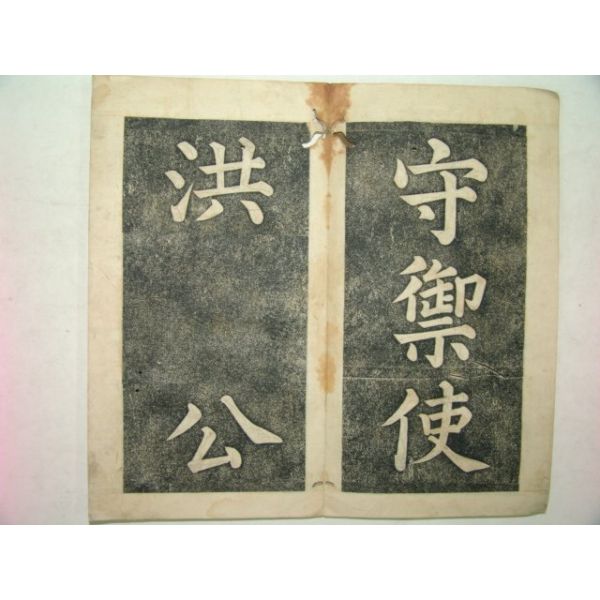 守禦使
洪公